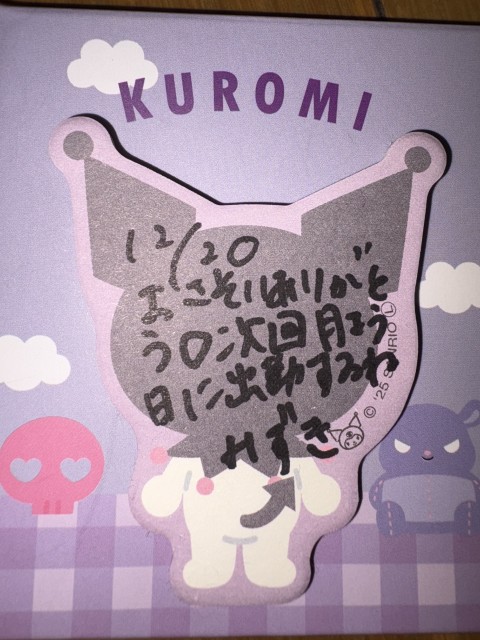 KUROMI
12/20
ありがと
う〇次回月よう
日に出勤するね
みずき
© '25 SANRIO Ⓛ